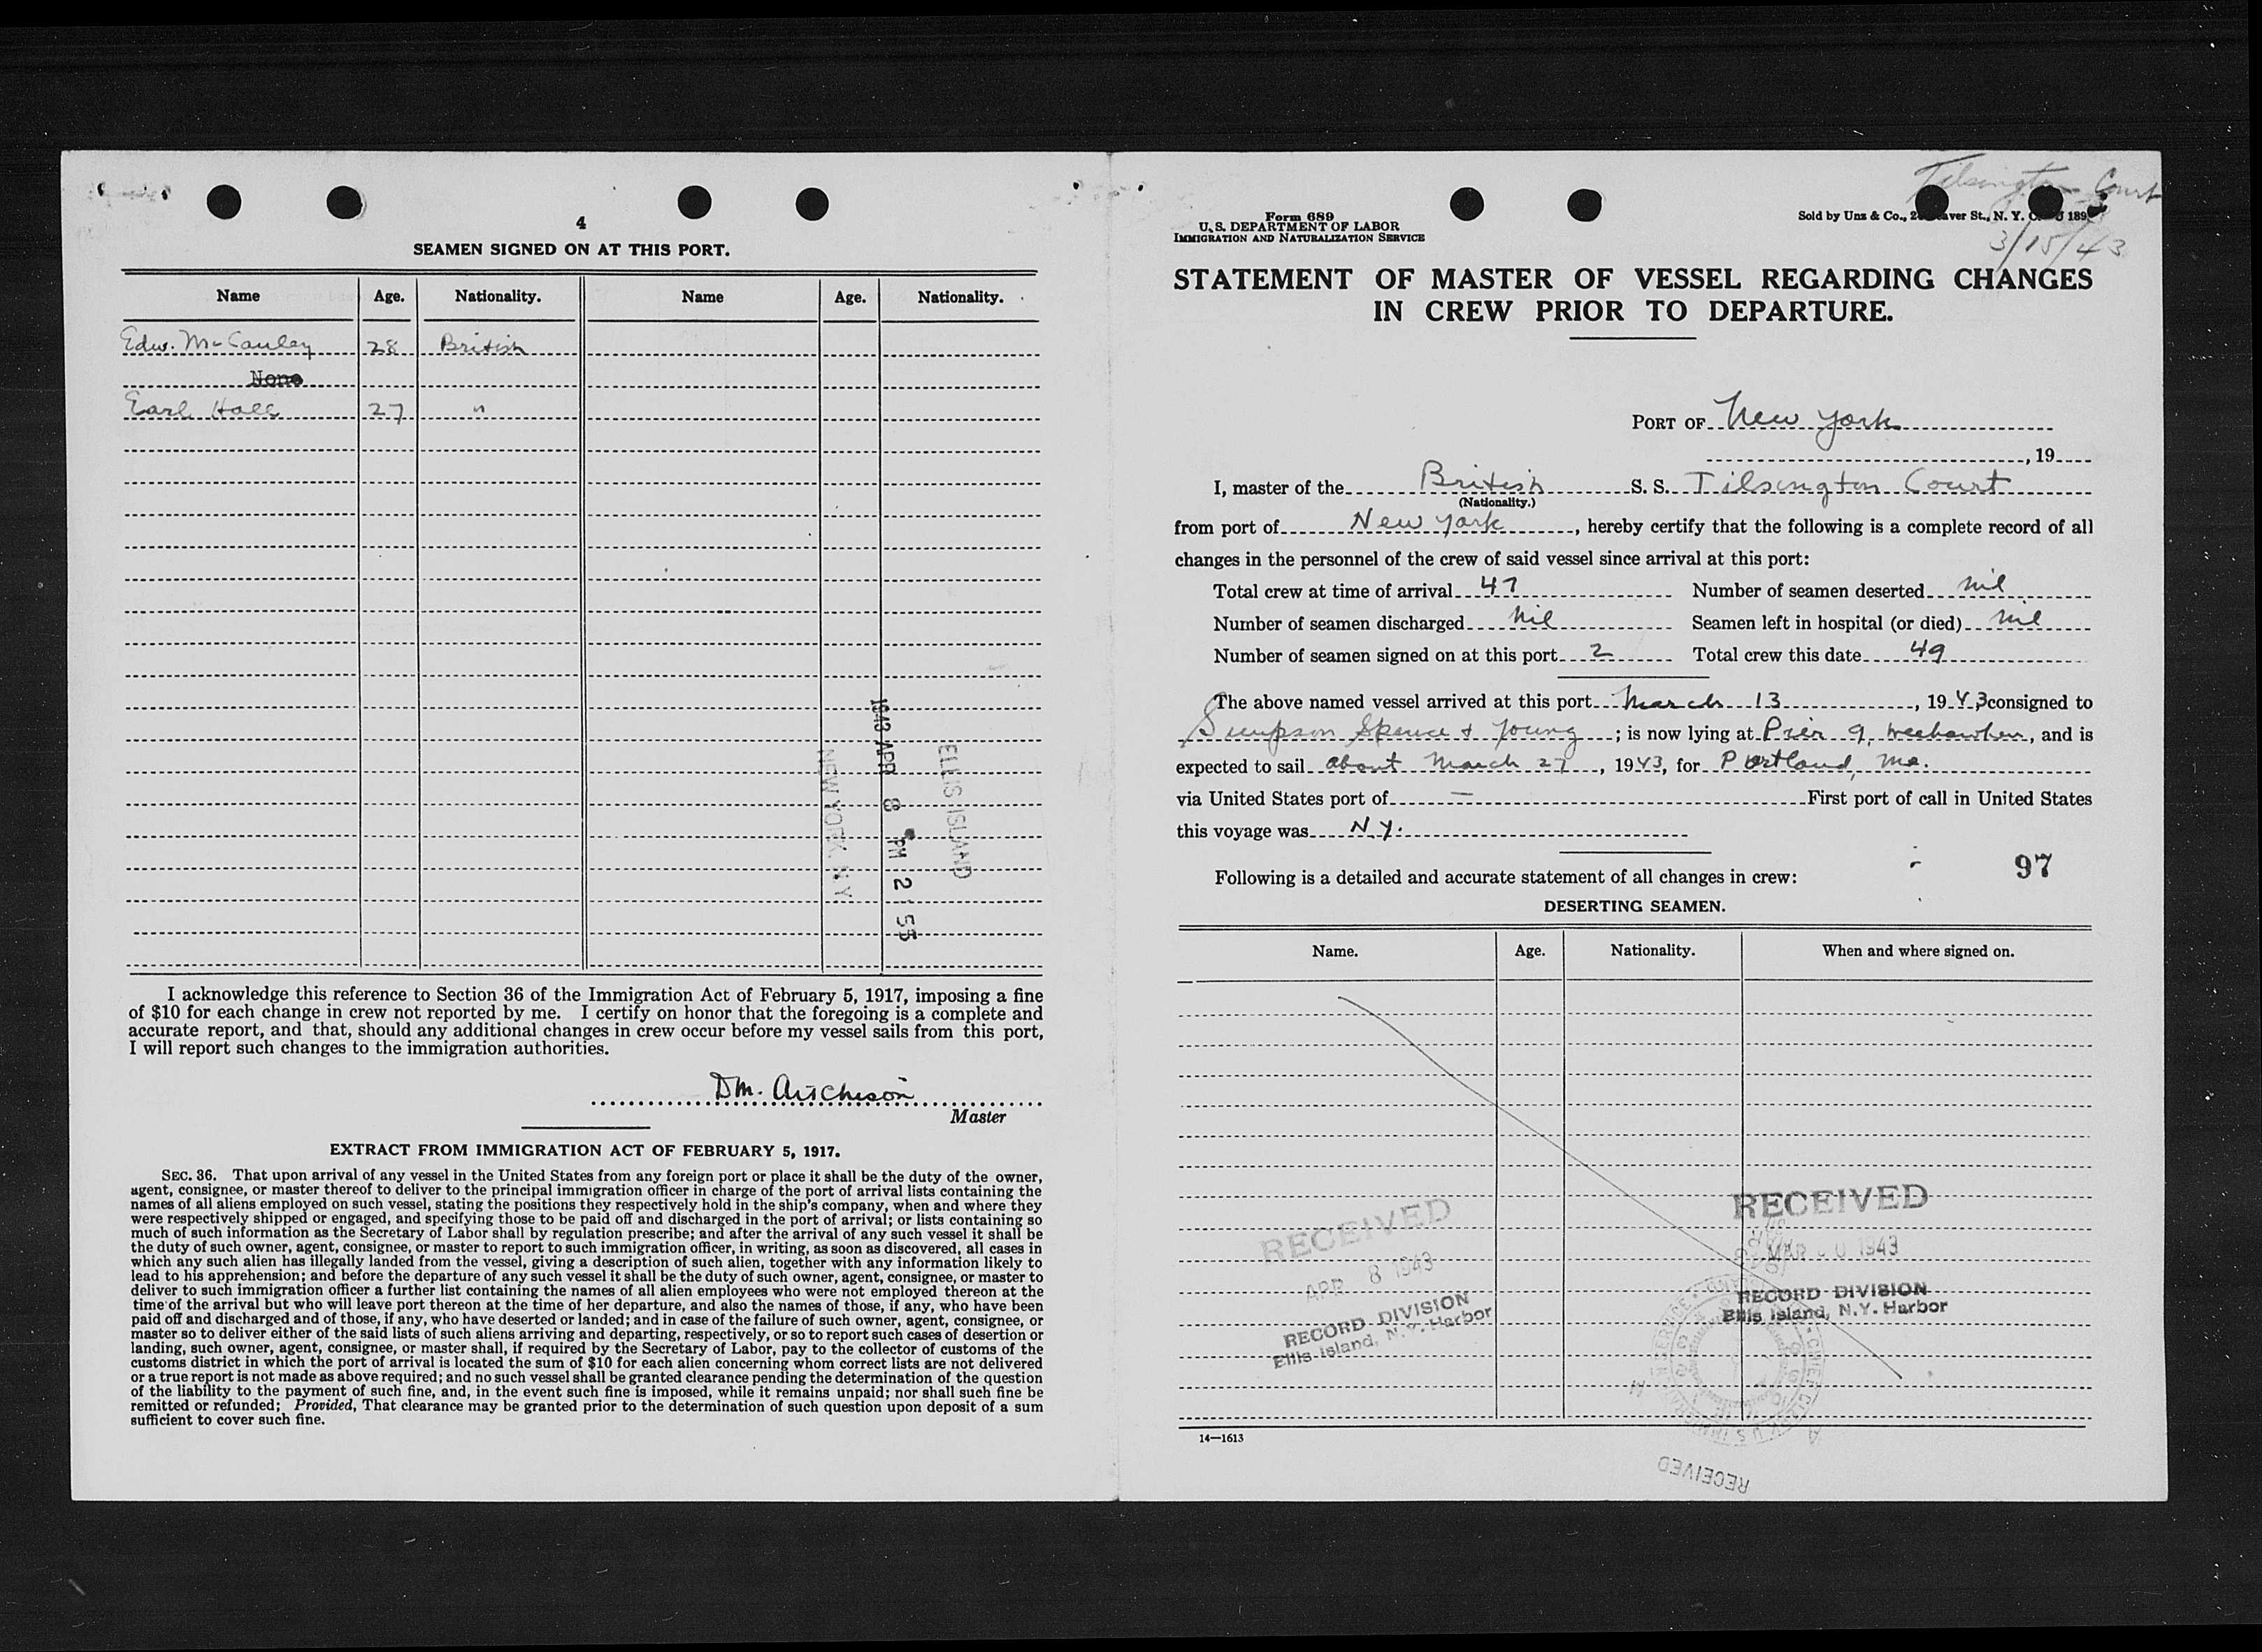 4
SEAMEN SIGNED ON AT THIS PORT.
Name Age. Nationality. Name Age. Nationality.
Edw. McCauley 28 British
None
Earl Hall 27 "
ELLIS ISLAND
1943 APR 8 PM 2 55
NEW YORK, N.Y.
I acknowledge this reference to Section 36 of the Immigration Act of February 5, 1917, imposing a fine
of $10 for each change in crew not reported by me. I certify on honor that the foregoing is a complete and
accurate report, and that, should any additional changes in crew occur before my vessel sails from this port,
I will report such changes to the immigration authorities.
DM. Aitcheson
Master
EXTRACT FROM IMMIGRATION ACT OF FEBRUARY 5, 1917.
SEC. 36. That upon arrival of any vessel in the United States from any foreign port or place it shall be the duty of the owner,
agent, consignee, or master thereof to deliver to the principal immigration officer in charge of the port of arrival lists containing the
names of all aliens employed on such vessel, stating the positions they respectively hold in the ship's company, when and where they
were respectively shipped or engaged, and specifying those to be paid off and discharged in the port of arrival; or lists containing so
much of such information as the Secretary of Labor shall by regulation prescribe; and after the arrival of any such vessel it shall be
the duty of such owner, agent, consignee, or master to report to such immigration officer, in writing, as soon as discovered, all cases in
which any such alien has illegally landed from the vessel, giving a description of such alien, together with any information likely to
lead to his apprehension; and before the departure of any such vessel it shall be the duty of such owner, agent, consignee, or master to
deliver to such immigration officer a further list containing the names of all alien employees who were not employed thereon at the
time of the arrival but who will leave port thereon at the time of her departure, and also the names of those, if any, who have been
paid off and discharged and of those, if any, who have deserted or landed; and in case of the failure of such owner, agent, consignee, or
master so to deliver either of the said lists of such aliens arriving and departing, respectively, or so to report such cases of desertion or
landing, such owner, agent, consignee, or master shall, if required by the Secretary of Labor, pay to the collector of customs of the
customs district in which the port of arrival is located the sum of $10 for each alien concerning whom correct lists are not delivered
or a true report is not made as above required; and no such vessel shall be granted clearance pending the determination of the question
of the liability to the payment of such fine, and, in the event such fine is imposed, while it remains unpaid; nor shall such fine be
remitted or refunded; Provided, That clearance may be granted prior to the determination of such question upon deposit of a sum
sufficient to cover such fine.
Tilsington Court
Form 689
U. S. DEPARTMENT OF LABOR
IMMIGRATION AND NATURALIZATION SERVICE
Sold by Unz & Co., St., N. Y. 189
3/15/43
STATEMENT OF MASTER OF VESSEL REGARDING CHANGES
IN CREW PRIOR TO DEPARTURE.
PORT OF New York
, 19
I, master of the British S. S. Tilsington Court
(Nationality.)
from port of New York, hereby certify that the following is a complete record of all
changes in the personnel of the crew of said vessel since arrival at this port:
Total crew at time of arrival 47 Number of seamen deserted nil
Number of seamen discharged Nil Seamen left in hospital (or died) nil
Number of seamen signed on at this port 2 Total crew this date 49
The above named vessel arrived at this port March 13, 1943 consigned to
Simpson Spence & Young; is now lying at Pier 9, Weehawken, and is
expected to sail about March 27, 1943, for Portland, Me.
via United States port of — First port of call in United States
this voyage was N.Y.
97
Following is a detailed and accurate statement of all changes in crew:
DESERTING SEAMEN.
Name. Age. Nationality. When and where signed on.
RECEIVED
APR 8 1943
RECORD DIVISION
Ellis Island, N.Y. Harbor
RECEIVED
MAR 0 1943
RECORD DIVISION
Ellis Island, N.Y. Harbor
14—1613
RECEIVED